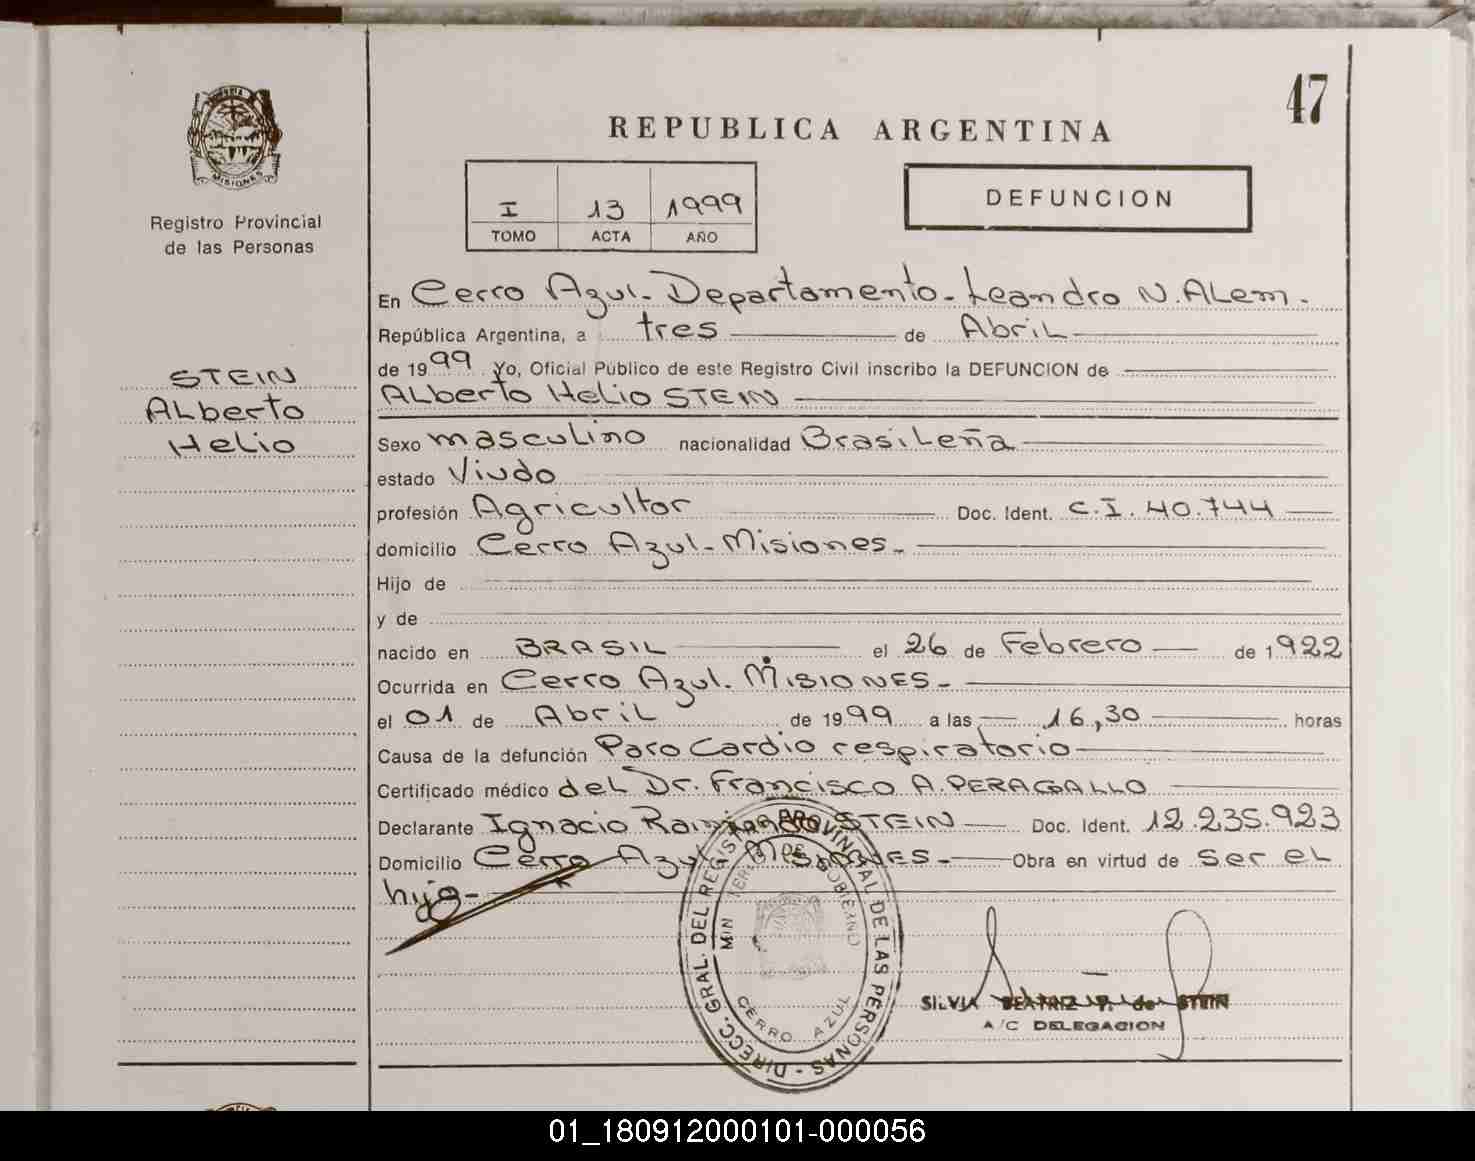 47
MISIONES
Registro Provincial
de las Personas
STEIN
Alberto
Helio
REPUBLICA ARGENTINA
I 13 1999
TOMO ACTA AÑO
DEFUNCION
En Cerro Azul - Departamento - Leandro N. ALem -
República Argentina, a tres de Abril
de 1999 Yo, Oficial Público de este Registro Civil inscribo la DEFUNCION de
ALberto Helio STEIN
Sexo masculino nacionalidad Brasileña
estado Viudo
profesión Agricultor Doc. Ident. C.I. 40.744
domicilio Cerro Azul - Misiones -
Hijo de
y de
nacido en BRASIL el 26 de Febrero de 1922
Ocurrida en Cerro Azul. MISIONES -
el 01 de Abril de 1999 a las 16,30 horas
Causa de la defunción Paro Cardio respiratorio
Certificado médico del Dr. Francisco A. PERAGALLO
Declarante Ignacio Raimundo STEIN Doc. Ident. 12.235.923
Domicilio Cerro Azul - MISIONES - Obra en virtud de ser el
hijo -
DIRECC. GRAL. DEL REGISTRO PROVINCIAL DE LAS PERSONAS -
MINISTERIO DE GOBIERNO
CERRO AZUL
SILVIA BEATRIZ P. de STEIN
A/C DELEGACION
01_180912000101-000056